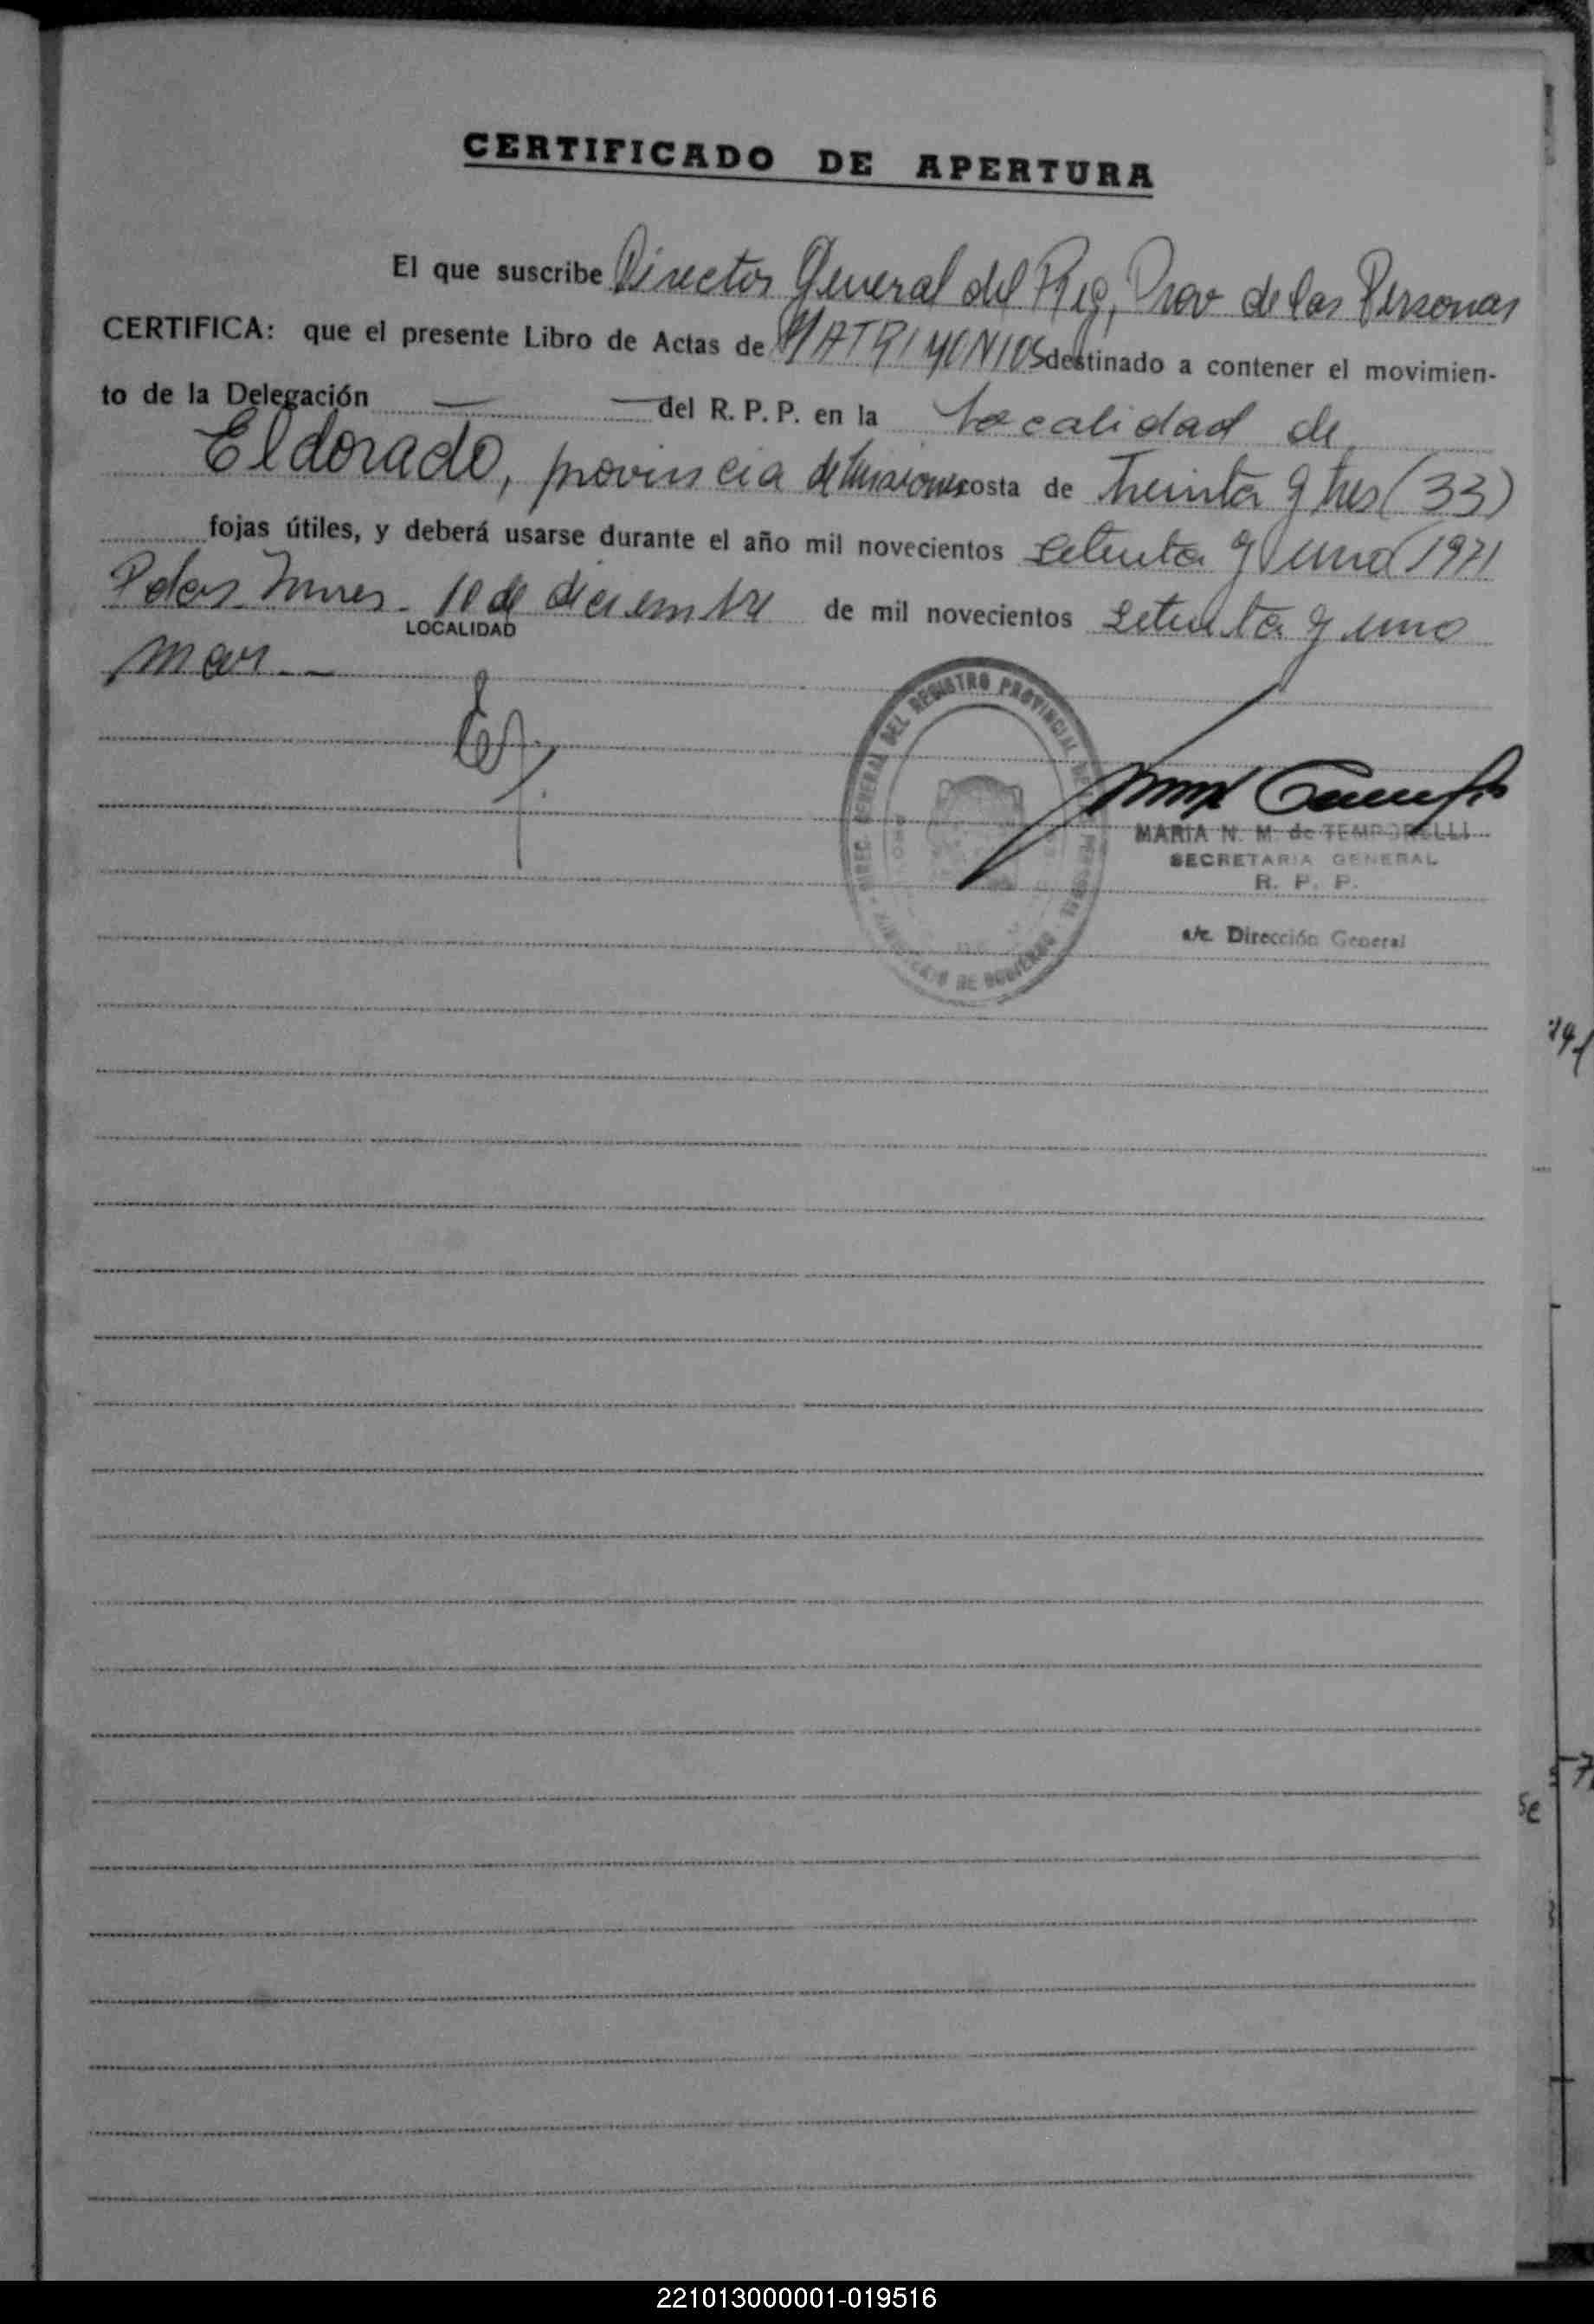 CERTIFICADO DE APERTURA
El que suscribe Director General del Reg, Prov de las Personas
CERTIFICA: que el presente Libro de Actas de MATRIMONIOS destinado a contener el movimien-
to de la Delegación — — del R. P. P. en la Localidad de
Eldorado, provincia de Misiones costa de Treinta y tres (33)
fojas útiles, y deberá usarse durante el año mil novecientos setenta y uno (1971
10 de diciembre de mil novecientos setenta y uno
LOCALIDAD
DIREC. GENERAL DEL REGISTRO PROVINCIAL DE
DE GOBIERNO
MARIA N. M. de TEMPORELLI
SECRETARIA GENERAL
R. P. P.
a/c. Dirección General
221013000001-019516